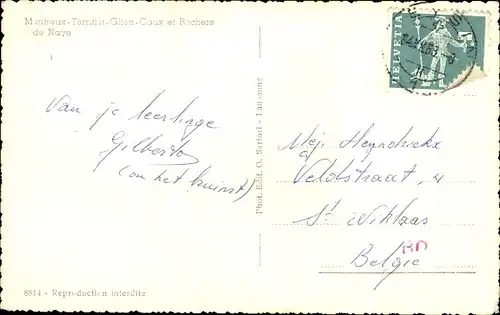 Montreux-Territet-Glion-Caux et Rochers
de Naye
HELVETIA
Van je leerlinge
Gilberte
(om het kuinst)
Phot. Edit. O. Sartori - Lausanne
Mej Heyndrickx
Veldstraat, 4
St Niklaas
België
8814 - Reproduction interdite